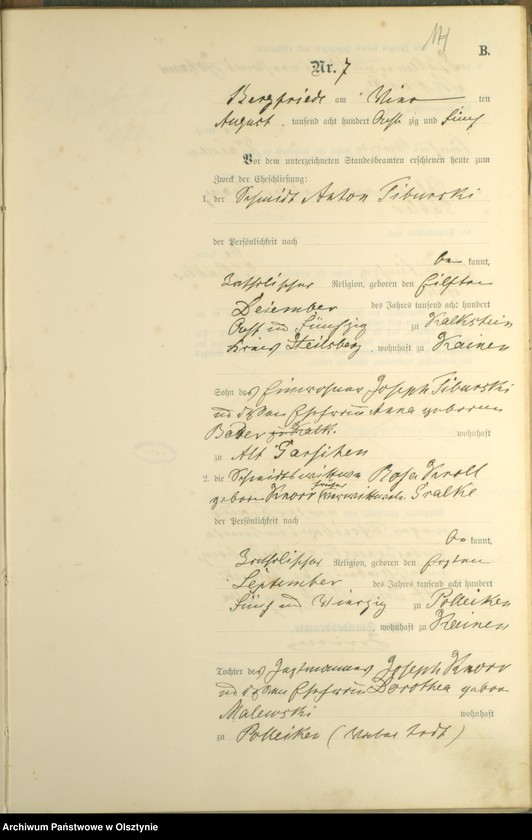 B.
Nr. 7
Bergfriede am Vier ten
August, tausend acht hundert Acht zig und Fünf
Vor dem unterzeichneten Standesbeamten erschienen heute zum
Zweck der Eheschließung:
1. der Schmidt Anton Tiburski
der Persönlichkeit nach
be kannt,
Katholischer Religion, geboren den Eilften
Dezember des Jahres tausend acht hundert
Acht und Fünfzig zu Kalkstein
Kreis Heilsberg, wohnhaft zu Kainen
Sohn des Einwohner Joseph Tiburski
und dessen Ehefrau Anna geborene
Bader wohnhaft
zu Alt Garschen
2. die Schmidtswittwe Rosa Kroll
geborene Knorr früher verwittwete Gralke
der Persönlichkeit nach
be kannt,
Katholischer Religion, geboren den Ersten
September des Jahres tausend acht hundert
Fünf und Vierzig zu Polleiken
, wohnhaft zu Kainen
Tochter des Joseph Knorr
und dessen Ehefrau Dorothea geborene
Malewski wohnhaft
zu Polleiken (todt)
Archiwum Państwowe w Olsztynie